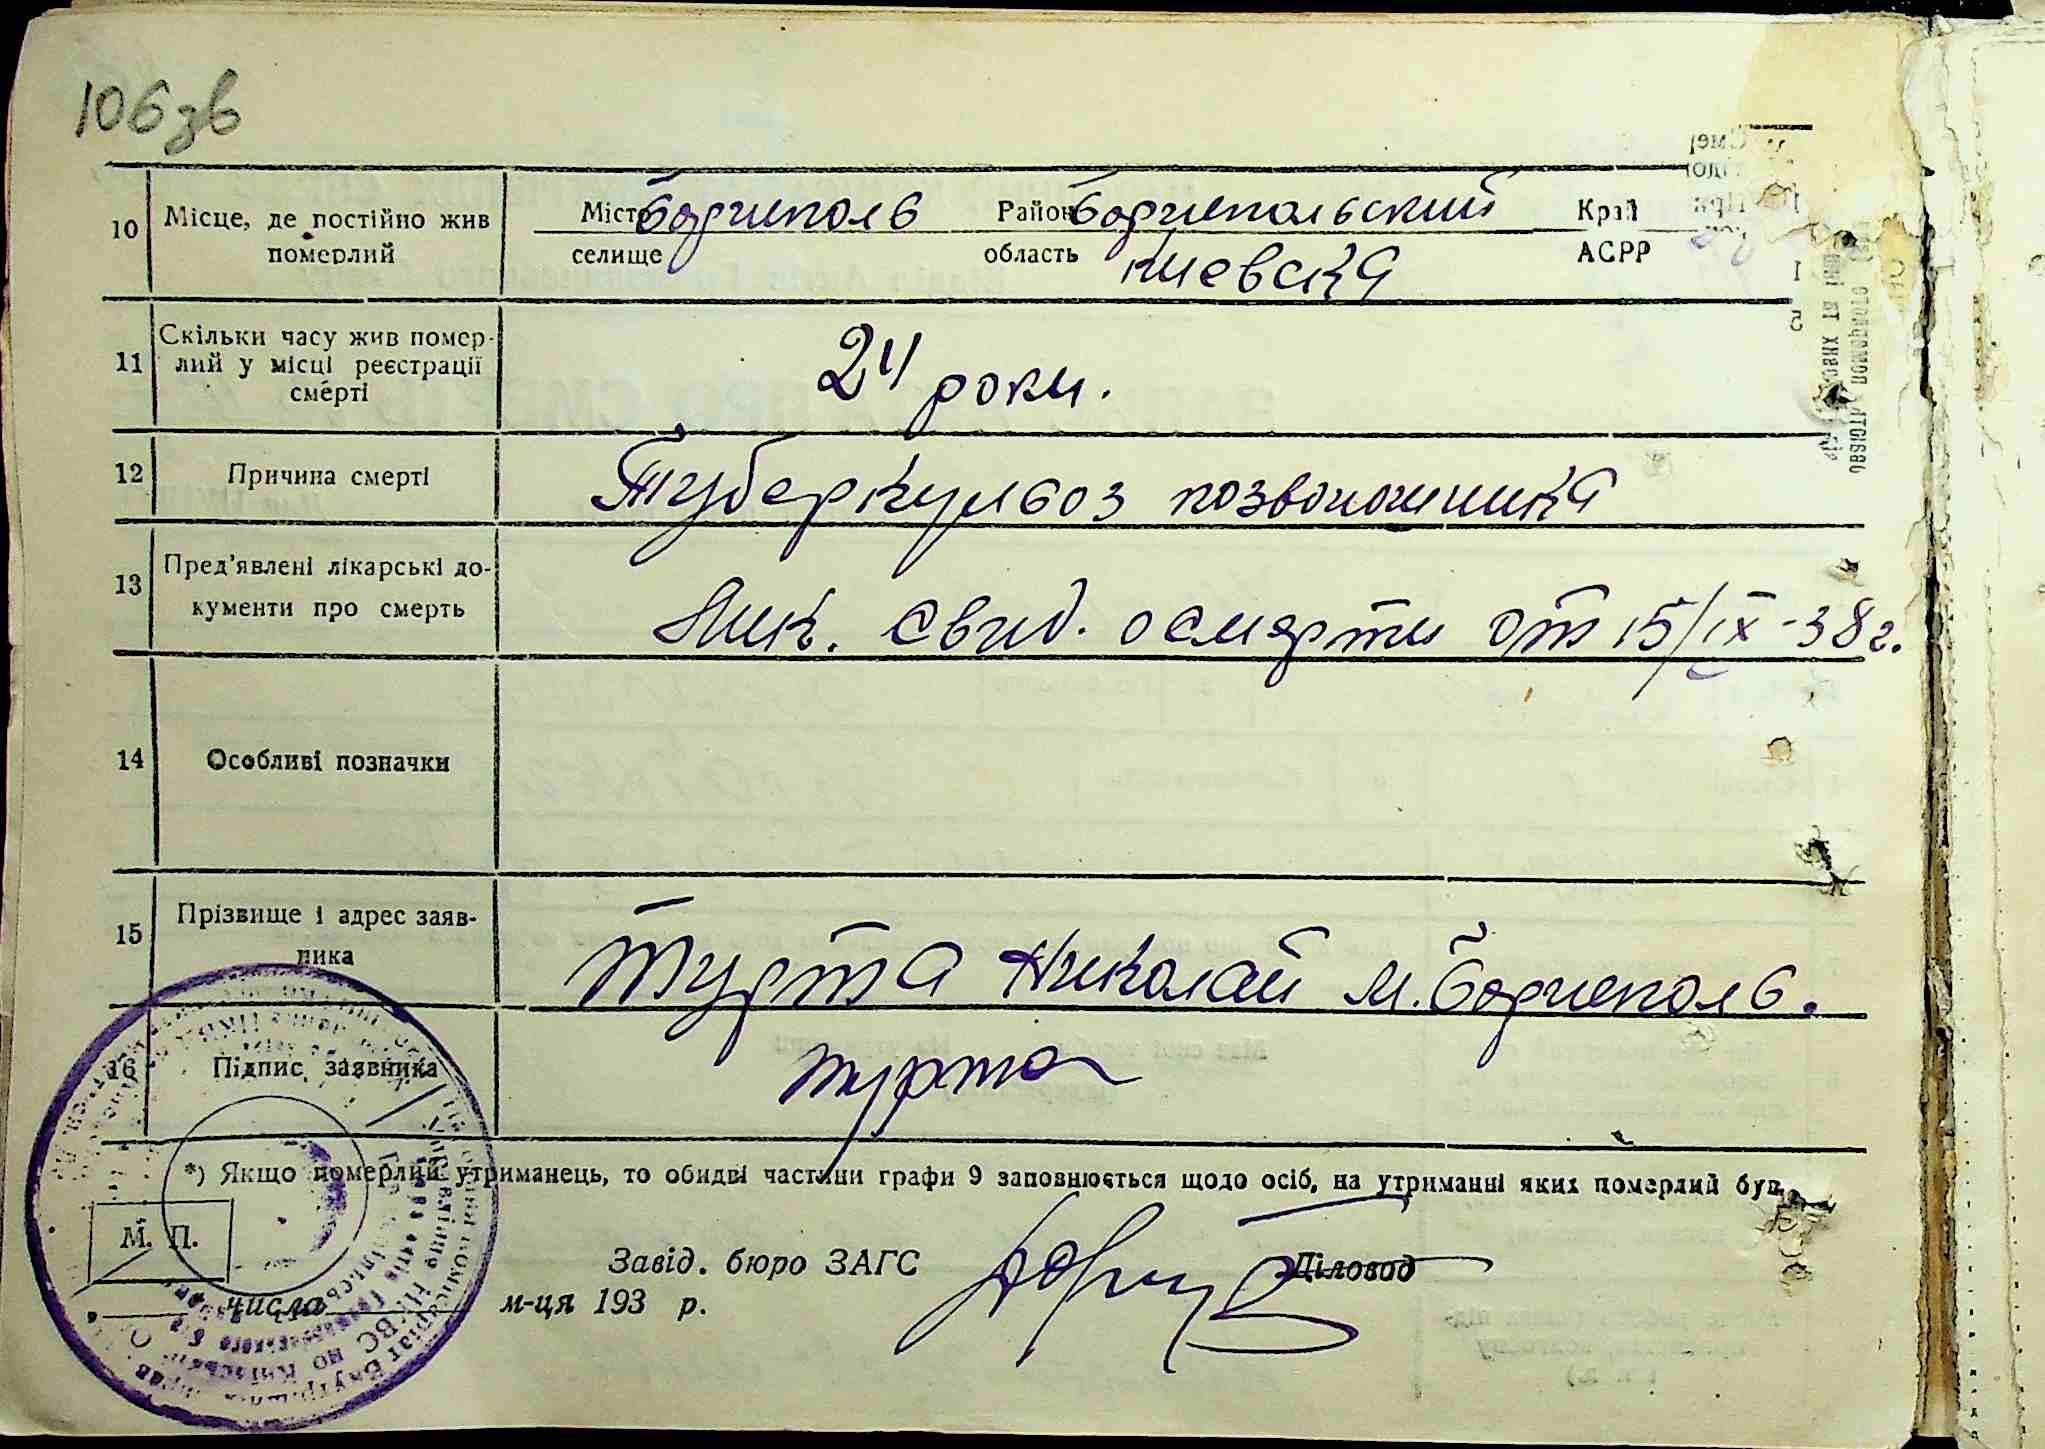 106зв
10 Місце, де постійно жив Місто Бориполь Район Борипольский Край
померлий селище область Киевска АСРР
11 Скільки часу жив помер-
лий у місці реєстрації 24 роки.
смерті
12 Причина смерті Туберкульоз позвоночника
13 Пред'явлені лікарські до-
кументи про смерть свид. о смерти от 15/IX-38 г.
14 Особливі позначки
15 Прізвище і адрес заяв-
ника Турта Николай м. Бориполь.
16 Підпис заявника Турта
*) Якщо померлий утриманець, то обидві частини графи 9 заповнюється щодо осіб, на утриманні яких померлий був.
М. П.
Завід. бюро ЗАГС Діловод
числа м-ця 193 р.